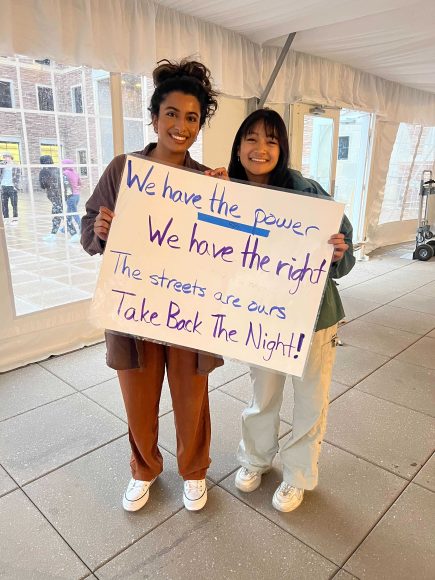 We have the power
We have the right
The streets are ours
Take Back The Night!